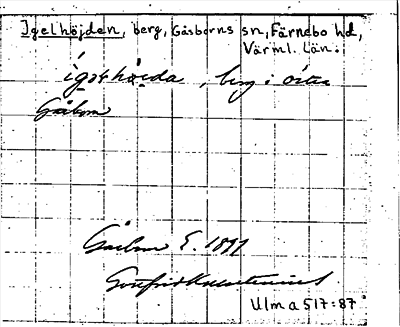 Igelhöjden, berg, Gåsborns sn, Färnebo hd,
Värml. län.
berg i östra
Gåsborn
Gåsborn S. 1891
Gottfrid Kallstenius
Ulma 517:87